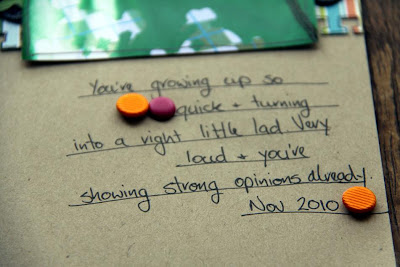 You're growing up so
quick + turning
into a right little lad. Very
loud + you're
showing strong opinions already.
Nov 2010